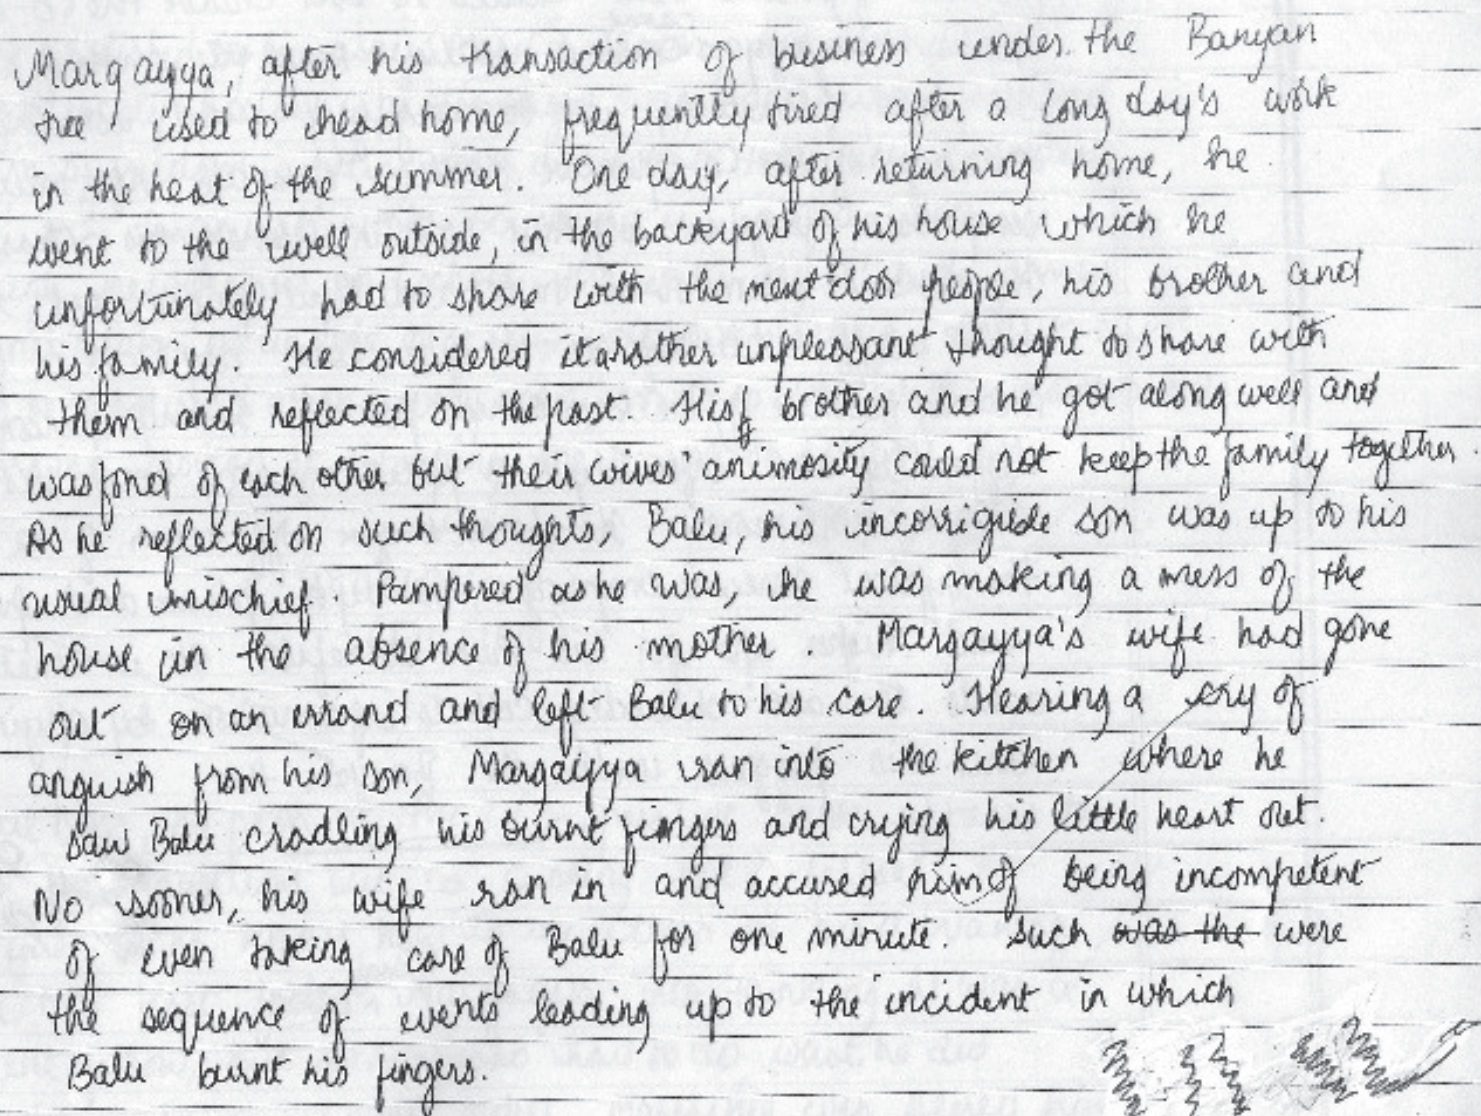 Margayya, after his transaction of business under the Banyan
tree used to head home, frequently tired after a long day's work
in the heat of the summer. One day, after returning home, he
went to the well outside, in the backyard of his house which he
unfortunately had to share with the next door people, his brother and
his family. He considered it a rather unpleasant thought to share with
them and reflected on the past. His brother and he got along well and
was fond of each other but their wives' animosity could not keep the family together.
As he reflected on such thoughts, Balu, his incorrigible son was up to his
usual mischief. Pampered as he was, he was making a mess of the
house in the absence of his mother. Margayya's wife had gone
out on an errand and left Balu to his care. Hearing a cry of
anguish from his son, Margayya ran into the kitchen where he
saw Balu cradling his burnt fingers and crying his little heart out.
No sooner, his wife ran in and accused him of being incompetent
of even taking care of Balu for one minute. Such was the were
the sequence of events leading up to the incident in which
Balu burnt his fingers.